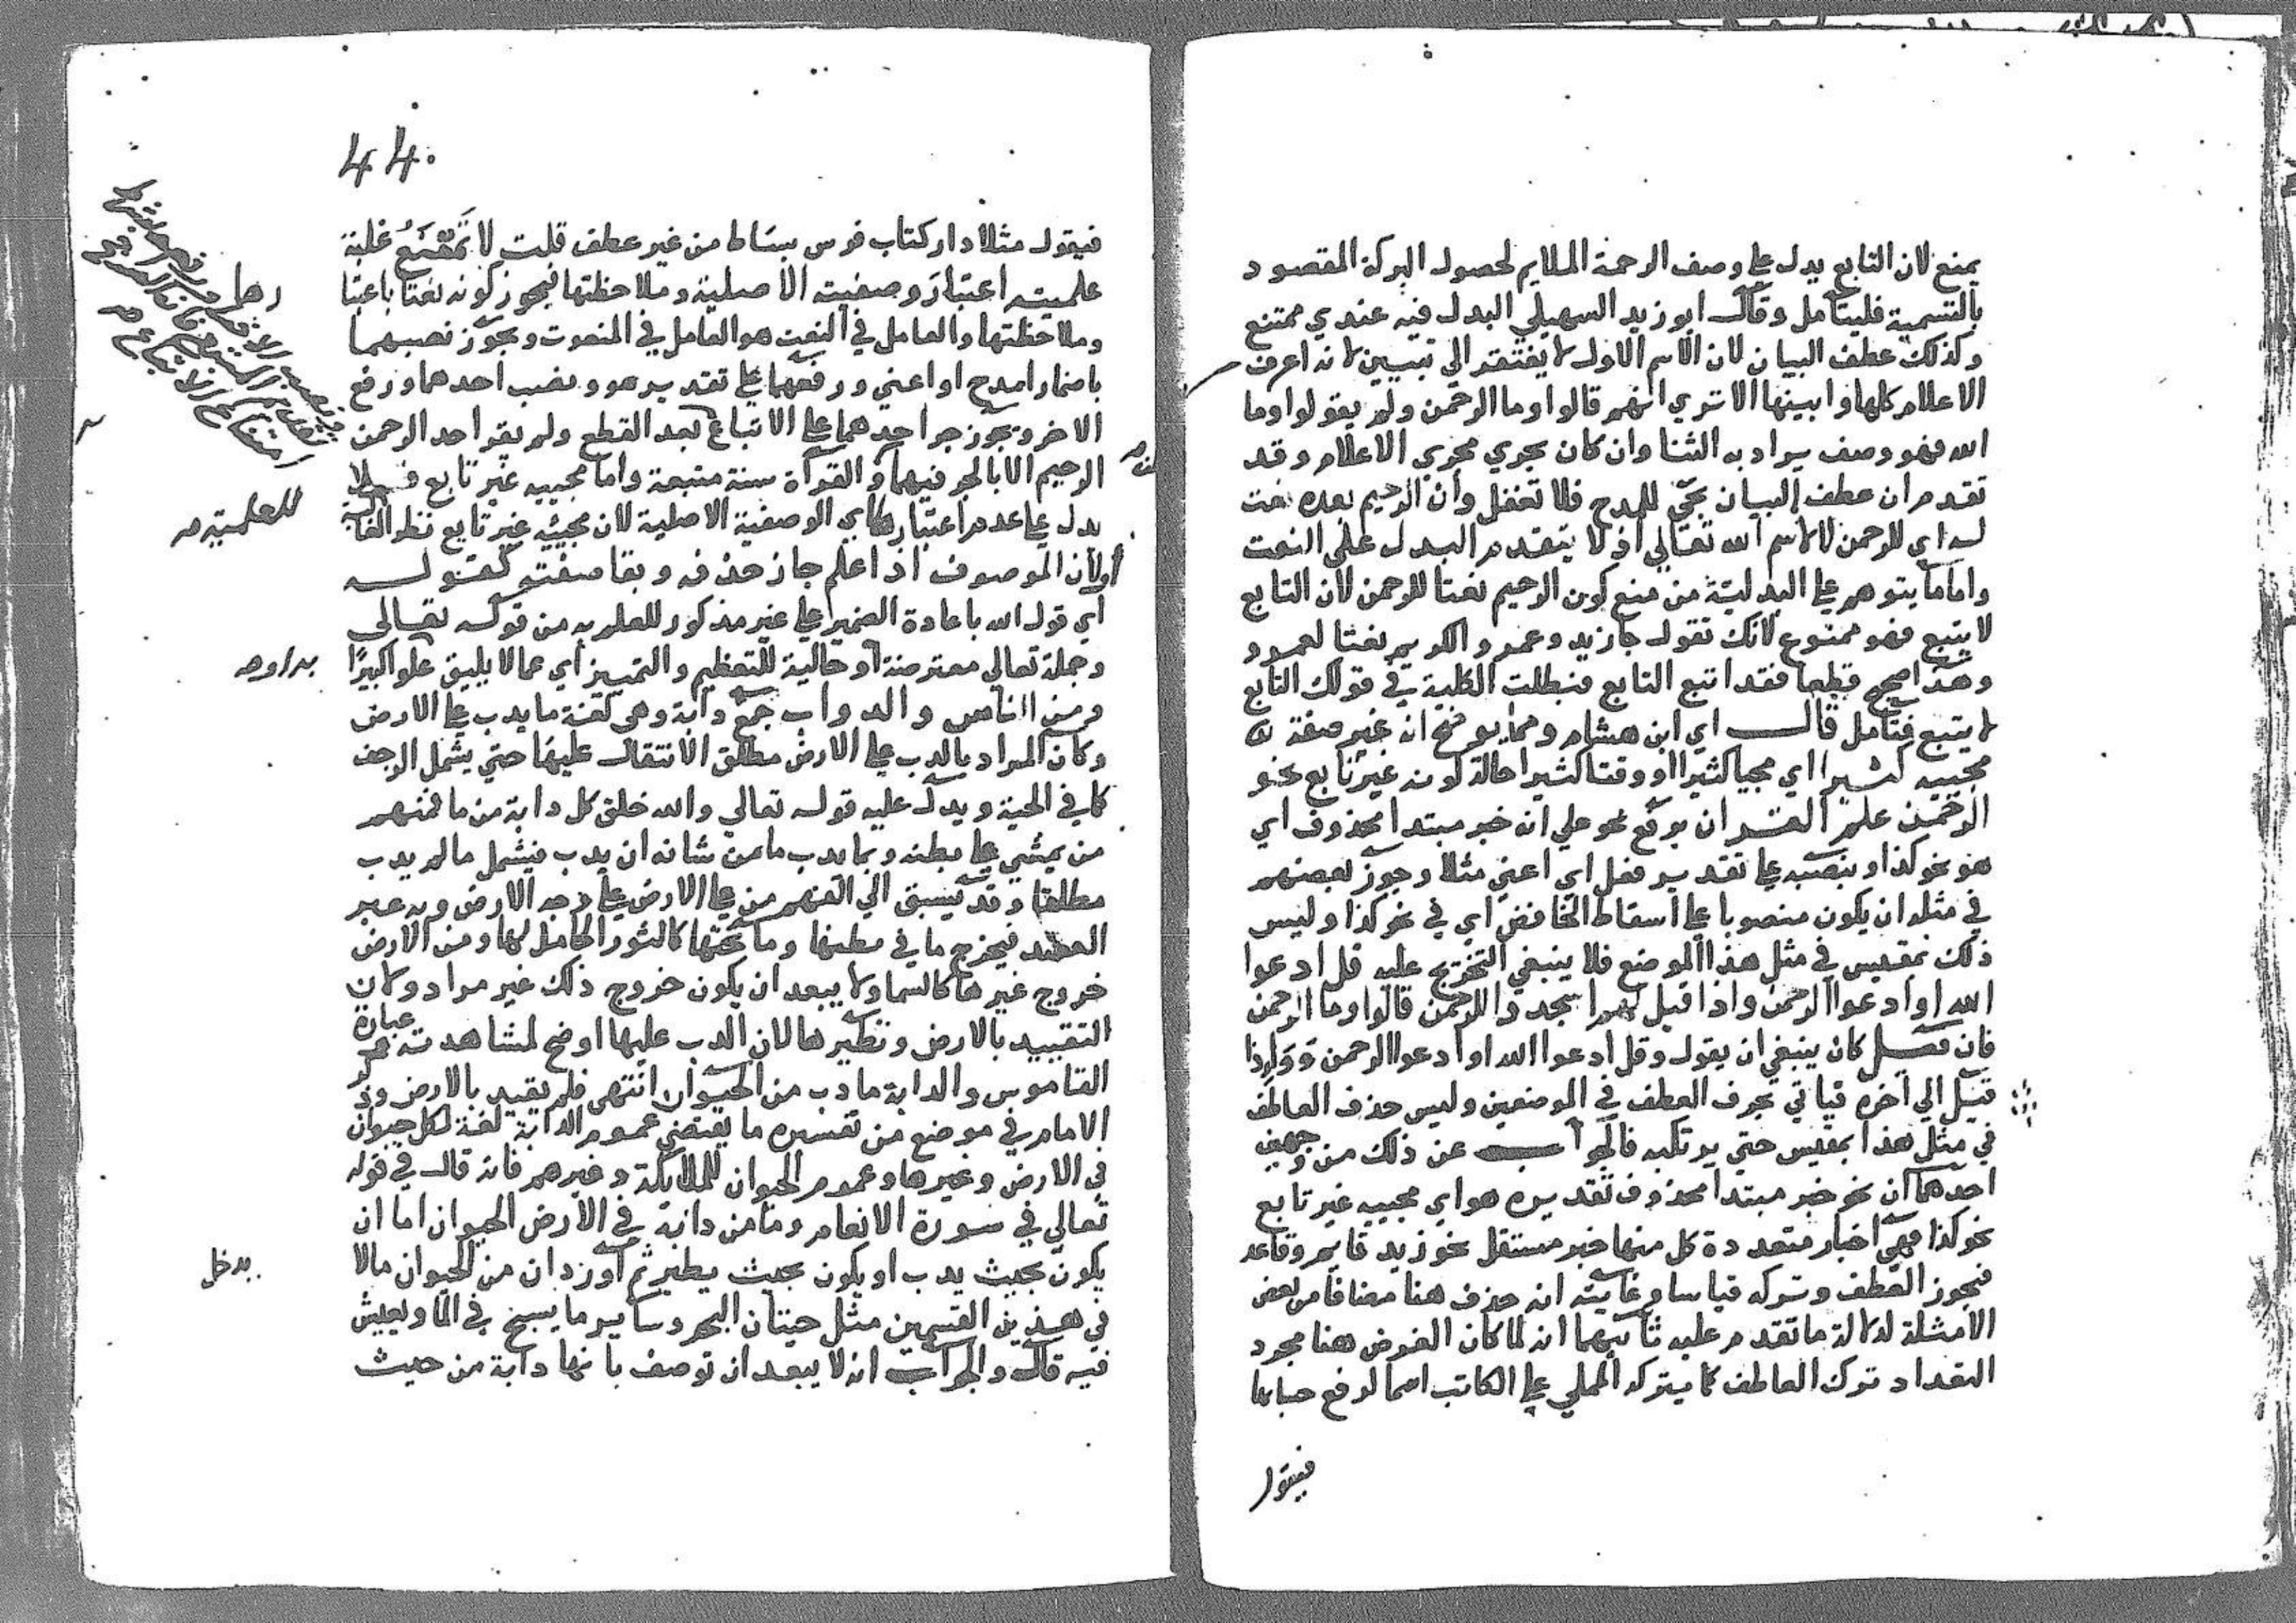 يمنع لان التابع يدل علي وصف الرحمة الملايم لحصول البركة المقصود
بالتسمية فليتامل وقال ابو زيد السهيلي البدل فيه عندي ممتنع
وكذلك عطف البيان لان الاسم الاول لا يفتقر الي تبيين لانه اعرف
الاعلام كلها وابينها الا تري انهم قالوا وما الرحمن ولم يقولوا وما
الله فهو وصف يراد به الثنا وان كان يجري مجري الاعلام وقد
تقدم ان عطف البيان يجي للمدح فلا تغفل وان الرحيم بعده نعت
له اي للرحمن لا لاسم الله تعالي اذ لا يتقدم البدل علي النعت
واما ما يتوهم علي البدلية من منع كون الرحيم نعتا للرحمن لان التابع
لا يتبع فهو ممنوع لانك تقول جا زيد وعمرو الكريم نعتا لعمرو
وهذا صحيح قطعا فقد اتبع التابع فبطلت الكلية في قولك التابع
لا يتبع فتامل قال اي ابن هشام ومما يوضح انه غير صفة
مجييه كثيرا اي مجيا كثيرا او وقتا كثيرا حالة كونه غير تابع نحو
الرحمن علم القران برفع نحو علي انه خبر مبتدا محذوف اي
هو نحو كذا وبنصبه علي تقدير فعل اي اعني مثلا وجوز بعضهم
في مثله ان يكون منصوبا علي اسقاط الخافض اي في نحو كذا وليس
ذلك بمقيس في مثل هذا الموضع فلا ينبغي التخريج عليه قل ادعوا
الله او ادعوا الرحمن واذا قيل لهم اسجدوا للرحمن قالوا وما الرحمن
فان قيل كان ينبغي ان يقول وقل ادعوا الله او ادعوا الرحمن وواذا
قيل الي اخره فياتي بحرف العطف في الموضعين وليس حذف العاطف
في مثل هذا بمقيس حتي يرتكبه فالجواب عن ذلك من وجهين
احدهما ان نحو خبر مبتدا محذوف تقديره هو اي مجييه غير تابع
نحو كذا فهي اخبار متعددة كل منها خبر مستقل نحو زيد قايم وقاعد
فيجوز العطف وتركه قياسا وغايته انه حذف هنا مضافا من بعض
الامثلة لدلالة ما تقدم عليه ثانيهما انه لما كان الغرض هنا مجرد
التعداد ترك العاطف كما يتركه المملي علي الكاتب اسما لرفع حسابها
فيقول
44
فيقول مثلا دار كتاب فرس بساط من غير عطف قلت لا تمنع غلبة
علميته اعتبار وصفيته الاصلية وملاحظتها فيجوز كونه نعتا باعتبا
وملاحظتها والعامل في النعت هو العامل في المنعوت ويجوز نصبهما
باضمار امدح او اعني ورفعهما علي تقدير هو ونصب احدهما ورفع
الاخر ويجوز جر احدهما علي الاتباع بعد القطع ولم يقرا احد الرحمن
الرحيم الا بالجر فيهما والقراة سنة متبعة واما مجييه غير تابع فلا
يدل علي عدم اعتبارها اي الوصفية الاصلية لان مجييه غير تابع نظرا لغا
ولان الموصوف اذا علم جاز حذفه وبقا صفته كقوله
اي قول الله باعادة الضمير علي غير مذكور للعلم به من قوله تعالي
وجملة تعالي معترضة او حالية للتعظيم والتمييز اي عما لا يليق علوا كبيرا
ومن الناس والدواب جمع دابة وهي لغة ما يدب علي الارض
وكان المراد بالدب علي الارض مطلق الانتقال عليها حتي يشمل الزحف
كما في الحية ويدل عليه قوله تعالي والله خلق كل دابة من ما فمنهم
من يمشي علي بطنه وبما يدب ما من شانه ان يدب فيشمل ما لم يدب
مطلقا وقد يسبق الي الفهم من علي الارض علي وجه الارض وبه عبر
العضد فيخرج ما في بطنها وما تحتها كالثور الحامل لها ومن الارض
خروج غيرها كالسما ولا يبعد ان يكون خروج ذلك غير مراد وكان
التقييد بالارض ونظيرها لان الدب عليها اوضح لمشاهدته عبارة
القاموس والدابة ما دب من الحيوان انتهي فلم يقيد بالارض وذكر
الامام في موضع من تفسيره ما يقتضي عموم الدابة لغة لكل حيوان
في الارض وغيرها وعموم الحيوان للملايكة وغيرهم فانه قال في قوله
تعالي في سورة الانعام وما من دابة في الارض الحيوان اما ان
يكون بحيث يدب او يكون بحيث يطير ثم اورد ان من الحيوان ما لا
في هذين القسمين مثل حيتان البحر وساير ما يسبح في الما ويعيش
فيه قال والجواب انه لا يبعد ان توصف بانها دابة من حيث
للعلمية صح
يدخل